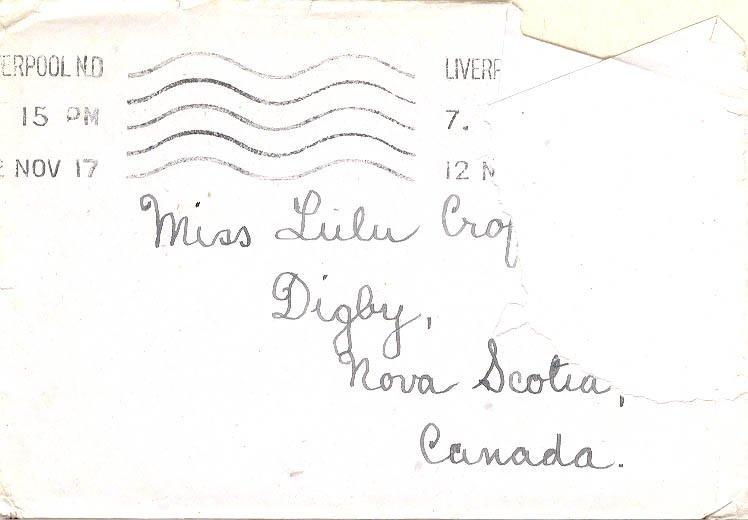 ERPOOL N.D LIVERP
15 PM 7.
2 NOV 17 12 N
Miss Lulu Crop
Digby,
Nova Scotia,
Canada.